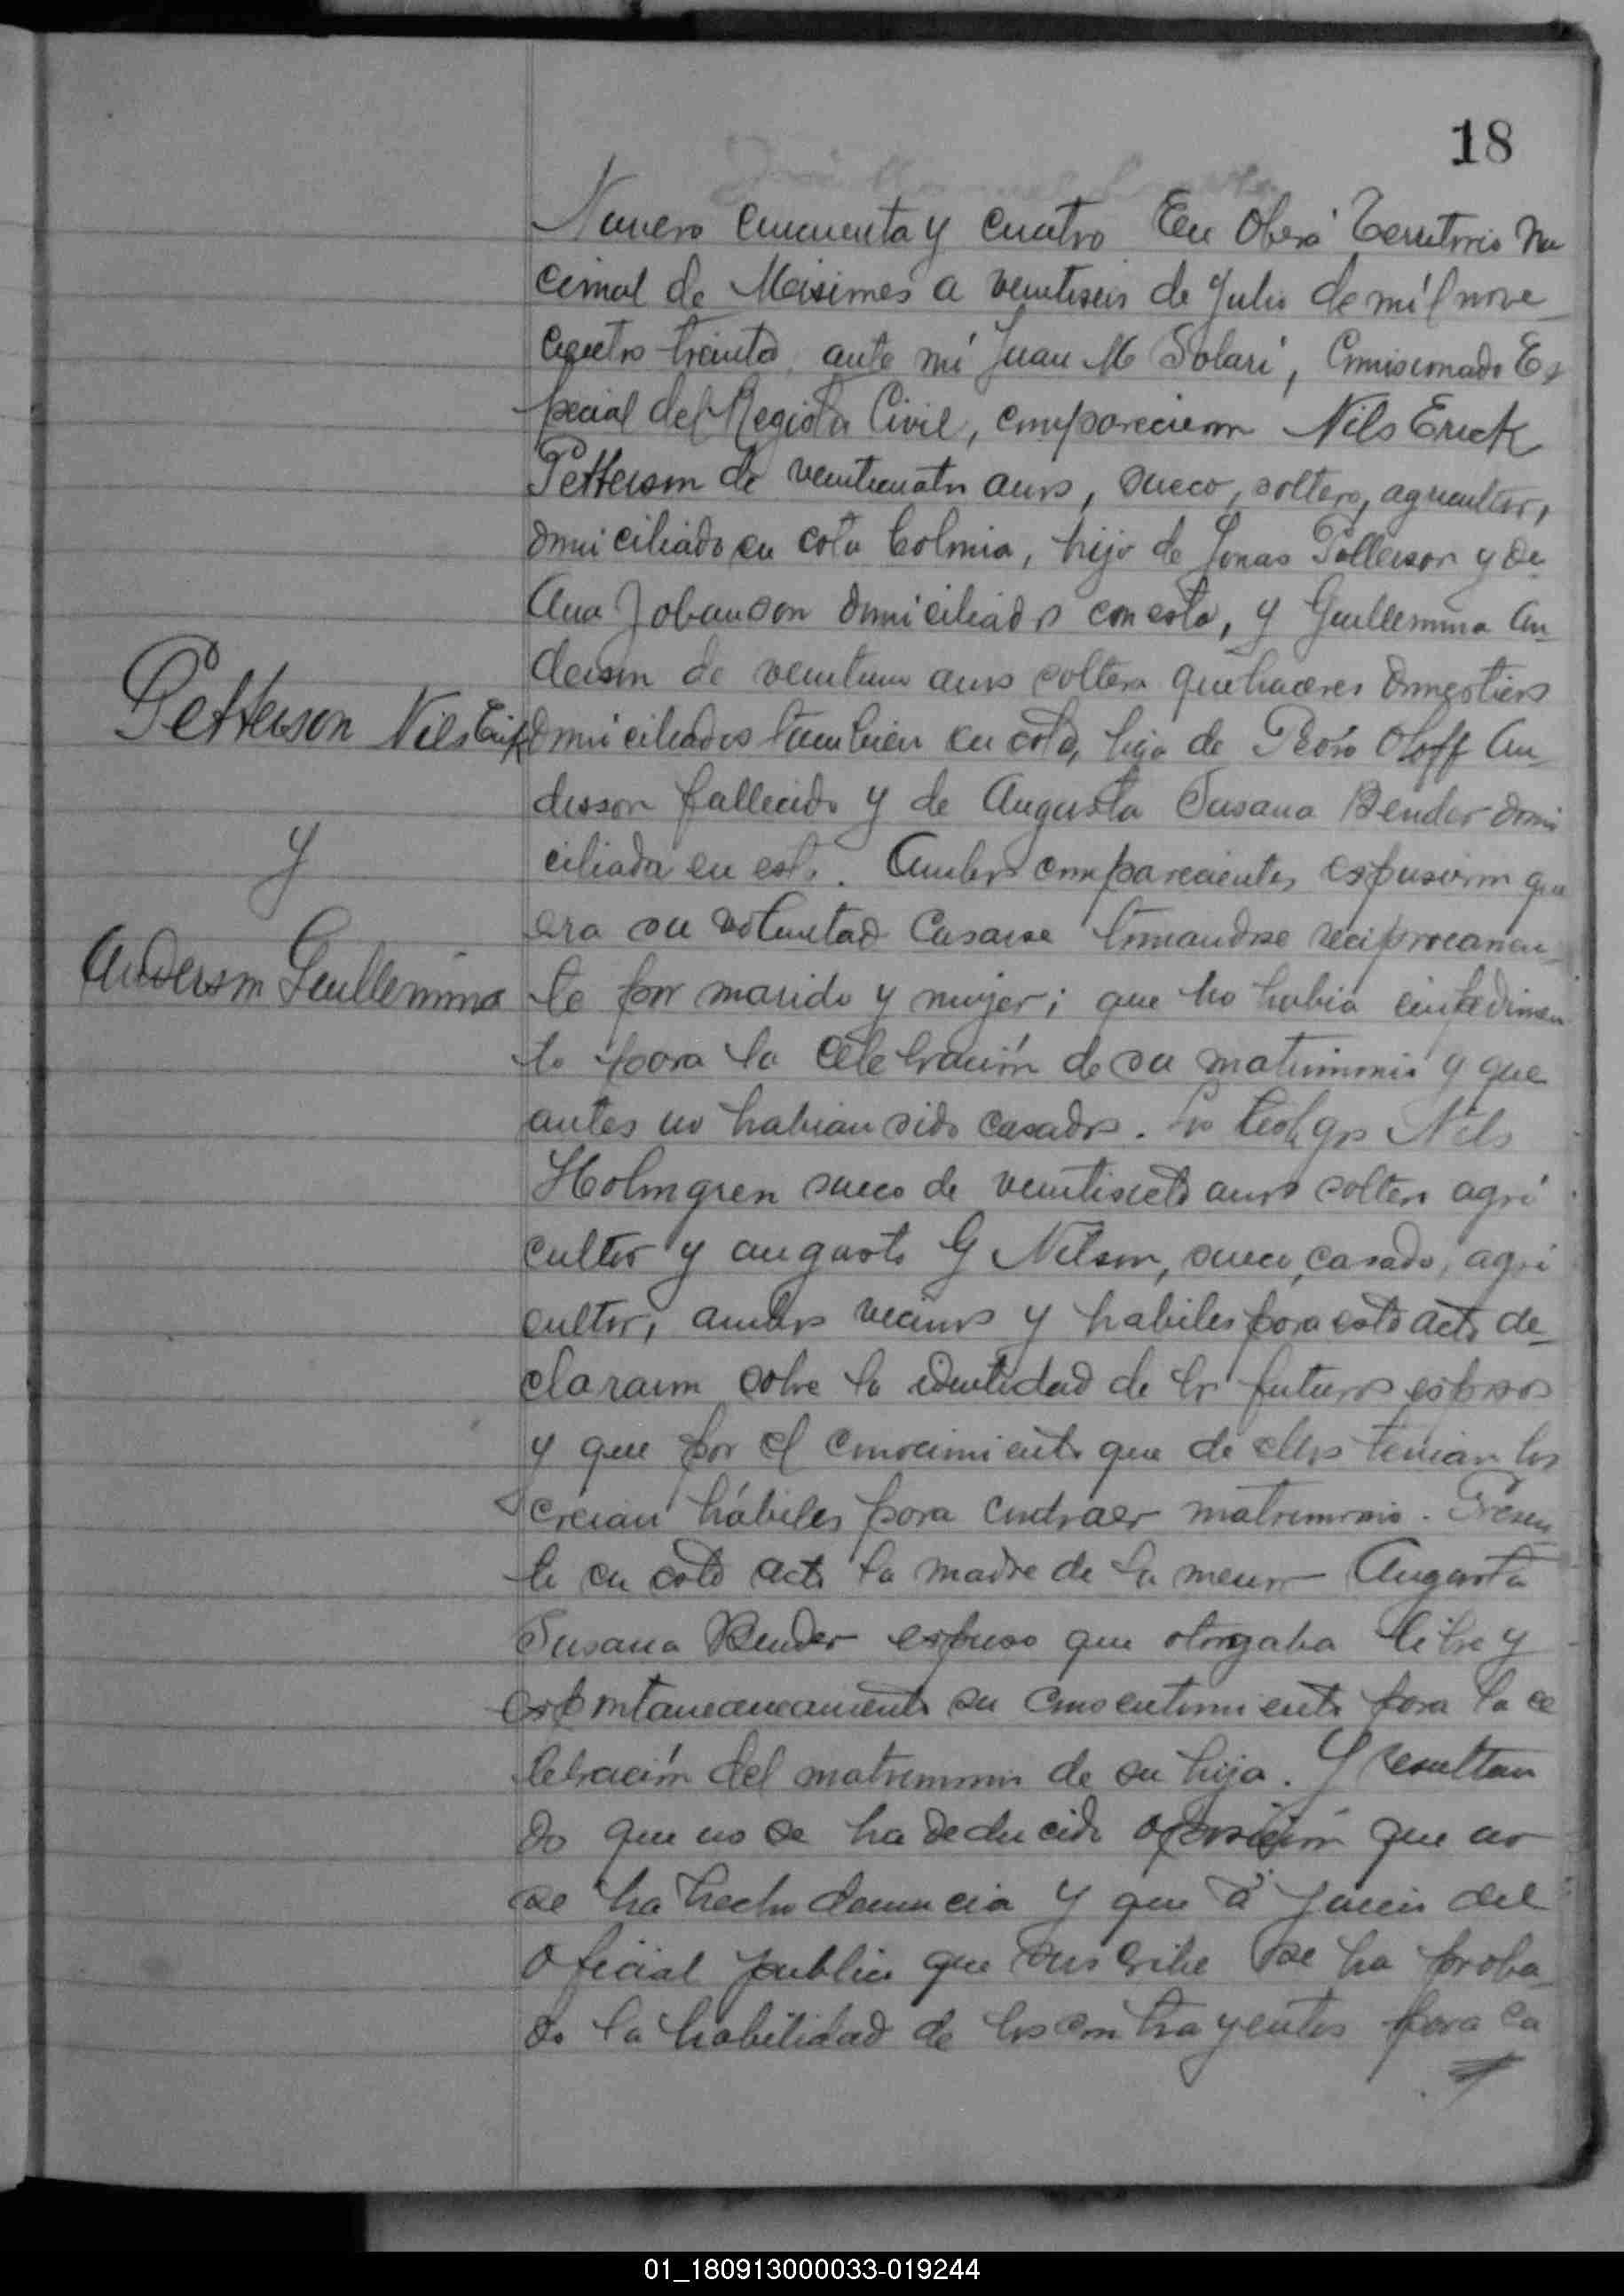 18
Numero cincuenta y cuatro En Oberá Territorio Na
cional de Misiones a veintiseis de Julio de mil nove
cientos treinta, ante mi Juan M Solari, Comisionado Es
pecial del Registro Civil, comparecieron Nils Erick
Petterson de veinticuatro años, sueco, soltero, agricultor,
domiciliado en esta Colonia, hijo de Jonas Petterson y de
Ana Johanson domiciliados en esta, y Guillermina An
derson de veintiun años soltera quehaceres domesticos
domiciliados tambien en esta, hija de Pedro Oloff An
desson fallecido y de Augusta Susana Bender domi
ciliada en esta. Ambos comparecientes espusieron que
era su voluntad Casarse tomandose reciprocamen
te por marido y mujer; que no habia impedimen
to para la Celebración de su matrimonio y que
antes no habian sido casados. Los testigos Nils
Holmgren sueco de veintisiete años soltero agri
cultor y augusto G Nelson, sueco, casado, agri
cultor, ambos vecinos y habiles para este acto de
clararon sobre la identidad de los futuros esposos
y que por el conocimiento que de ellos tenian los
creian hábiles para contraer matrimonio. Presen
te en este acto la madre de la menor Augusta
Susana Bender espuso que otorgaba libre y
espontaneaneamente su consentimiento para la ce
lebración del matrimonio de su hija. Y resultan
do que no se ha deducido oposición que no
se ha hecho denuncia y que á juicio del
oficial publico que suscribe se ha proba
do la habilidad de los contrayentes para ca
Petterson Nils Erik
y
Anderson Guillermina
01_180913000033-019244